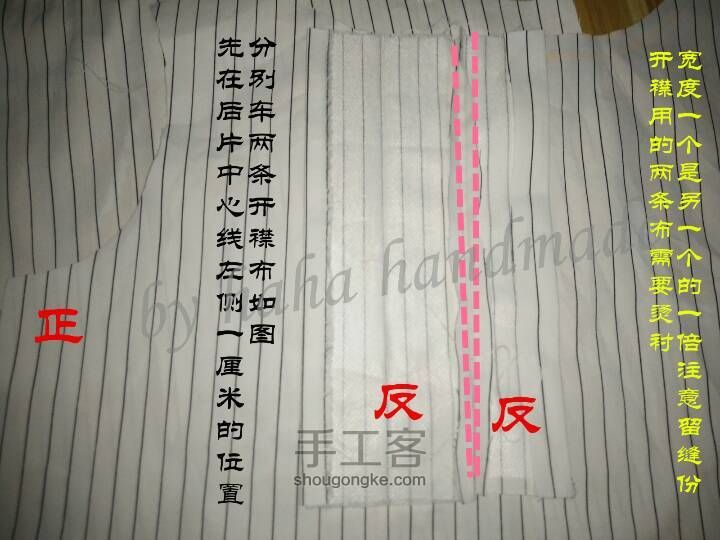 正
先在后片中心线左侧一厘米的位置
分别车两条开襟布如图
反
反
开襟用的两条布需要烫衬
宽度一个是另一个的一倍注意留缝份
by handmade
手工客
shougongke.com